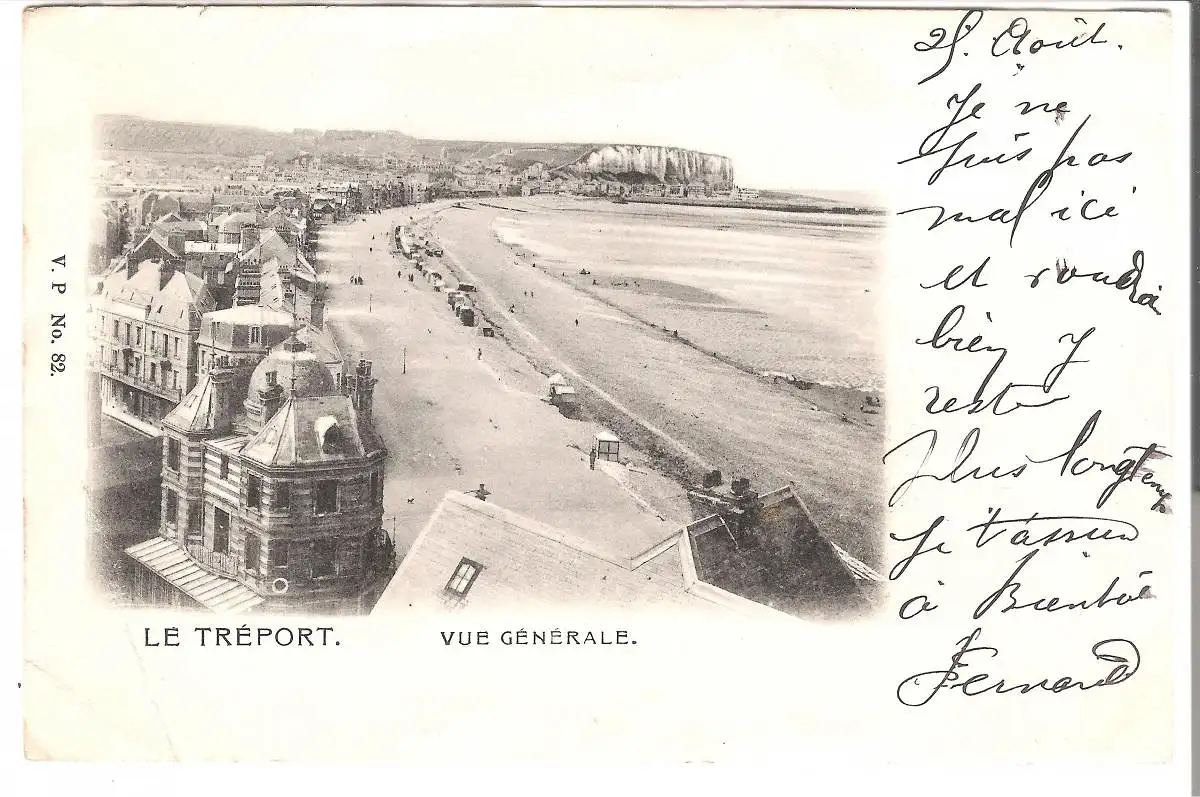 V. P No. 82.
LE TRÉPORT.
VUE GÉNÉRALE.
25. Août.
Je ne
suis pas
mal ici
et voudrai
bien y
rester
plus longtemps
Je t'assure
à Bientôt
Fernand